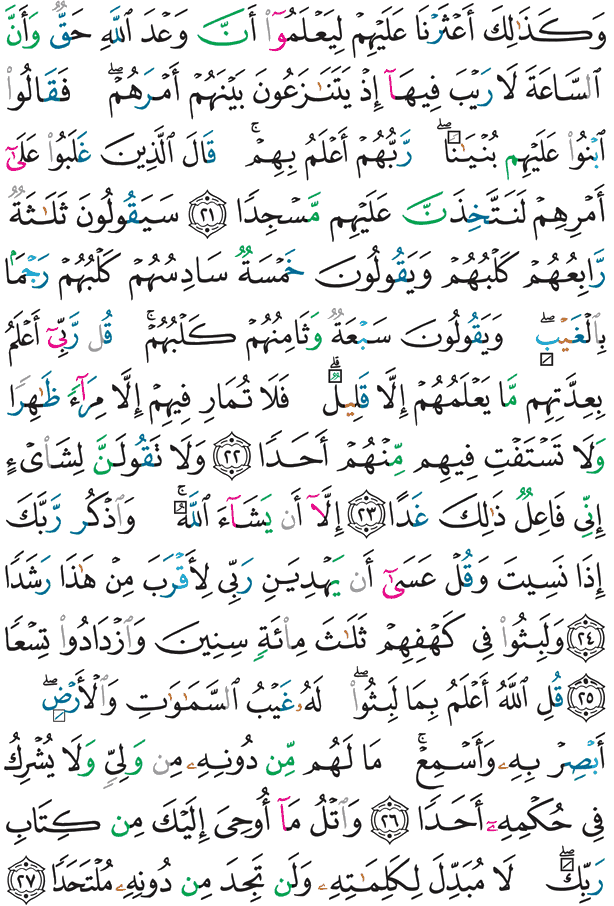 وَكَذَٰلِكَ أَعْثَرْنَا عَلَيْهِمْ لِيَعْلَمُوٓا۟ أَنَّ وَعْدَ ٱللَّهِ حَقٌّ وَأَنَّ
ٱلسَّاعَةَ لَا رَيْبَ فِيهَآ إِذْ يَتَنَـٰزَعُونَ بَيْنَهُمْ أَمْرَهُمْ ۖ فَقَالُوا۟
ٱبْنُوا۟ عَلَيْهِم بُنْيَـٰنًا ۖ رَّبُّهُمْ أَعْلَمُ بِهِمْ ۚ قَالَ ٱلَّذِينَ غَلَبُوا۟ عَلَىٰٓ
أَمْرِهِمْ لَنَتَّخِذَنَّ عَلَيْهِم مَّسْجِدًا ٢١ سَيَقُولُونَ ثَلَـٰثَةٌ
رَّابِعُهُمْ كَلْبُهُمْ وَيَقُولُونَ خَمْسَةٌ سَادِسُهُمْ كَلْبُهُمْ رَجْمًۢا
بِٱلْغَيْبِ ۖ وَيَقُولُونَ سَبْعَةٌ وَثَامِنُهُمْ كَلْبُهُمْ ۚ قُل رَّبِّىٓ أَعْلَمُ
بِعِدَّتِهِم مَّا يَعْلَمُهُمْ إِلَّا قَلِيلٌ ۗ فَلَا تُمَارِ فِيهِمْ إِلَّا مِرَآءً ظَـٰهِرًا
وَلَا تَسْتَفْتِ فِيهِم مِّنْهُمْ أَحَدًا ٢٢ وَلَا تَقُولَنَّ لِشَا۟ىْءٍ
إِنِّى فَاعِلٌ ذَٰلِكَ غَدًا ٢٣ إِلَّآ أَن يَشَآءَ ٱللَّهُ ۚ وَٱذْكُر رَّبَّكَ
إِذَا نَسِيتَ وَقُلْ عَسَىٰٓ أَن يَهْدِيَنِ رَبِّى لِأَقْرَبَ مِنْ هَـٰذَا رَشَدًا
٢٤ وَلَبِثُوا۟ فِى كَهْفِهِمْ ثَلَـٰثَ مِا۟ئَةٍ سِنِينَ وَٱزْدَادُوا۟ تِسْعًا
٢٥ قُلِ ٱللَّهُ أَعْلَمُ بِمَا لَبِثُوا۟ ۖ لَهُۥ غَيْبُ ٱلسَّمَـٰوَٰتِ وَٱلْأَرْضِ ۖ
أَبْصِرْ بِهِۦ وَأَسْمِعْ ۚ مَا لَهُم مِّن دُونِهِۦ مِن وَلِىٍّ وَلَا يُشْرِكُ
فِى حُكْمِهِۦٓ أَحَدًا ٢٦ وَٱتْلُ مَآ أُوحِىَ إِلَيْكَ مِن كِتَابِ
رَبِّكَ ۖ لَا مُبَدِّلَ لِكَلِمَـٰتِهِۦ وَلَن تَجِدَ مِن دُونِهِۦ مُلْتَحَدًا ٢٧